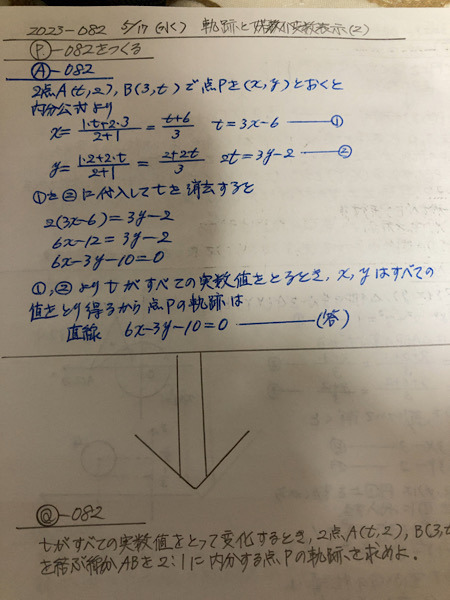 2023-082 5/17(水) 軌跡と媒介変数表示(2)
Ⓟ-082をつくる
Ⓐ-082
2点A(t,2), B(3,t)で点Pを(x,y)とおくと
内分公式より
x=\frac{1·t+2·3}{2+1}=\frac{t+6}{3} t=3x-6 ──①
y=\frac{1·2+2·t}{2+1}=\frac{2+2t}{3} 2t=3y-2 ──②
①を②に代入してtを消去すると
2(3x-6)=3y-2
6x-12=3y-2
6x-3y-10=0
①,②よりtがすべての実数値をとるとき, x, yはすべての
値をとり得るから点Pの軌跡は
直線 6x-3y-10=0 ──(答)
Ⓠ-082
tがすべての実数値をとって変化するとき, 2点A(t,2), B(3,t
を結ぶ線分ABを2:1に内分する点Pの軌跡を求めよ.